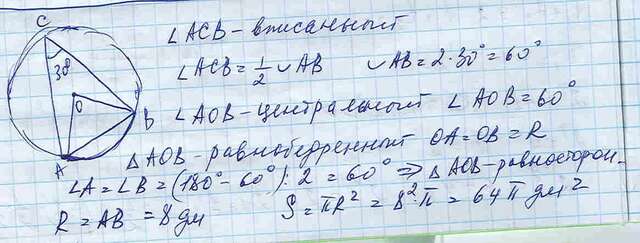 C
30°
O
B
A
∠ACB - вписанный
∠ACB = 1/2 ∪ AB   ∪ AB = 2·30° = 60°
∠AOB - центральный ∠AOB = 60°
△AOB - равнобедренный OA = OB = R
∠A = ∠B = (180° - 60°) : 2 = 60° ⇒ △AOB - равносторон.
R = AB = 8 дм   S = πR² = 8²·π = 64π дм²